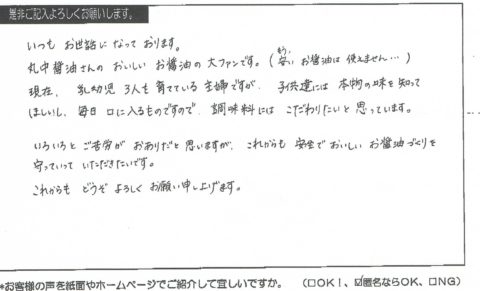 是非ご記入よろしくお願いします。
いつも お世話に なって おります。
丸中醤油さんの おいしい お醤油の 大ファンです。(もう、安い お醤油は 使えません…)
現在、乳幼児 3人を 育てている 主婦ですが、子供達には 本物の味を 知って
ほしいし、毎日 口に入るものですので、調味料には こだわりたいと 思っています。
いろいろと ご苦労が おありだと 思いますが、これからも 安全で おいしい お醤油づくりを
守っていって いただきたいです。
これからも どうぞ よろしく お願い申し上げます。
*お客様の声を紙面やホームページでご紹介して宜しいですか。 (□OK!、☑匿名ならOK、□NG)